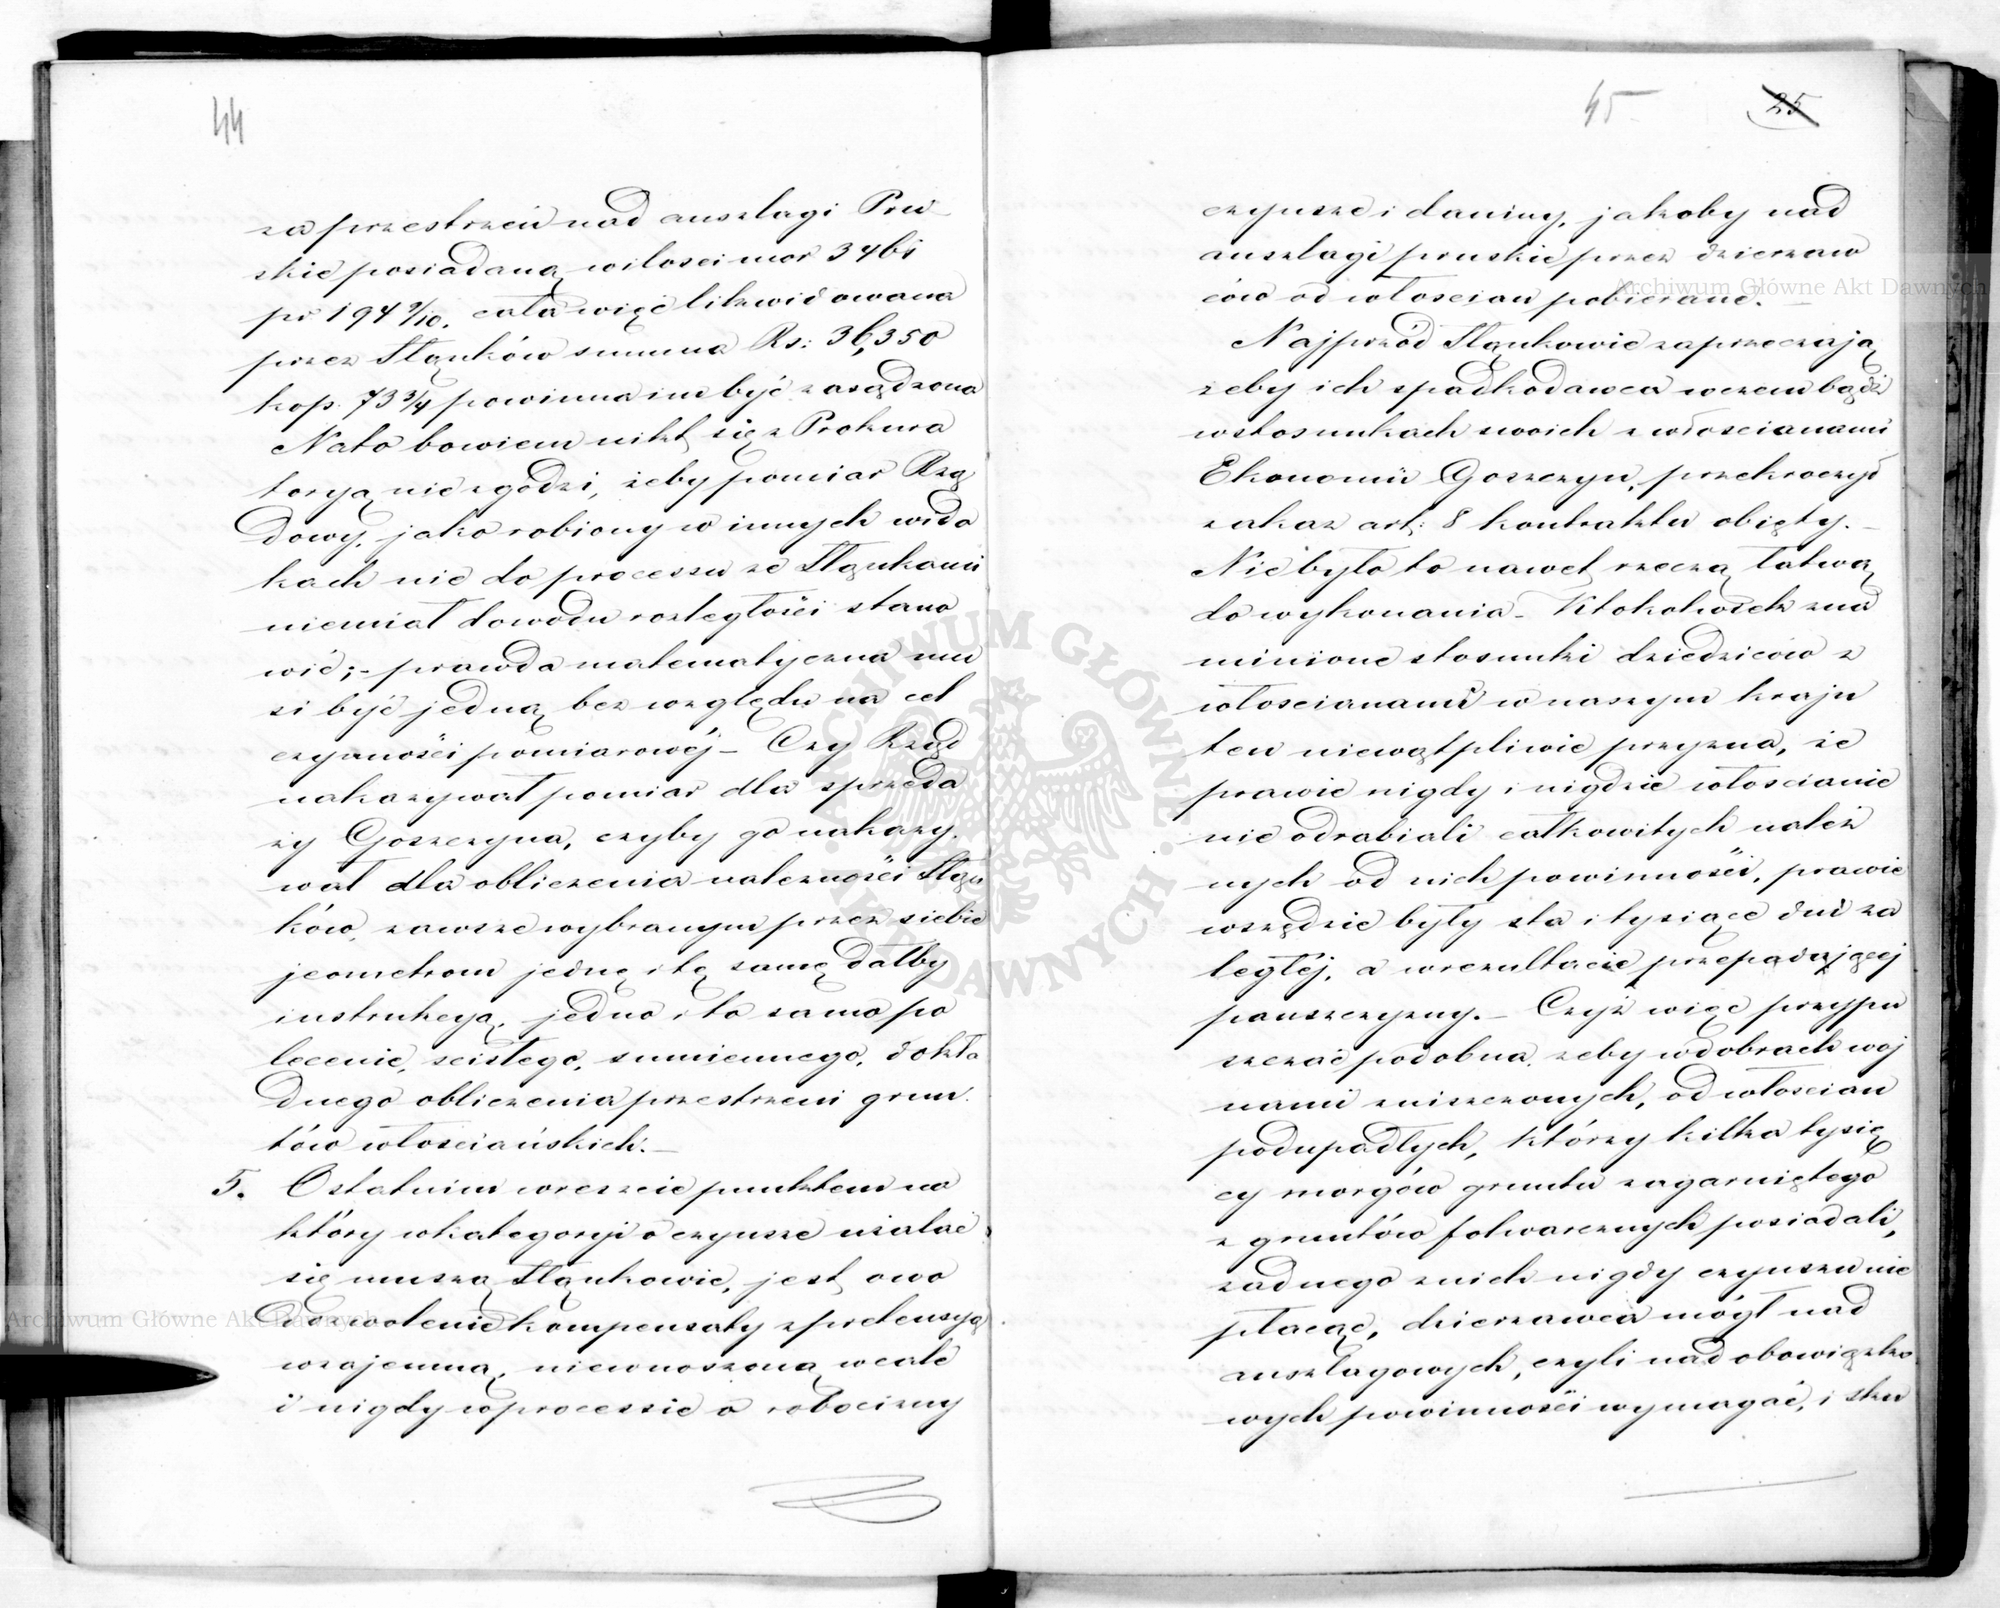 44
za przestrzeń nad anszlagi Pru
skie posiadaną wilosci mor 3461
pr 194 9/10. cała więc likwidowana
przez Słąnków summa Rs: 36,350
kop. 73 3/4 powinna im być zasądzona
Na to bowiem nikt się z Prokura
toryą nie zgodzi, żeby pomiar Rzą
dowy, jako robiony w innych wido
kach nie do processu ze Słąnkami
niemiał dowodu rozległości stano
wić; - prawda matematyczna mu
si być jedną bez względu na cel
czynności pomiarowéj - Czy Rząd
nakazywał pomiar dla sprzeda
ży Goszczyna, czyby go nakazy
wał dla obliczenia należności Słąn
ków, zawsze wybranym przez siebie
jeometrom jednę i tę samę dałby
instrukcyą, jedno i to samo po
lecenie, ścisłego, sumiennego, dokła
dnego obliczenia przestrzeni grun
tów włościańskich. -
5. Ostatnim wreszcie punktem na
który w kategoryi o czynsze użalać
się muszą Słąnkowie, jest owo
Dozwolenie kompensaty z pretensyą
wzajemną, niewnoszoną wcale
i nigdy w processie o robocizny
45 25
czynsze i daniny, jakoby nad
anszlagi pruskie przez dzierzaw
ców od włoscian pobierane. -
Najprzód Słąnkowie zaprzeczają
żeby ich spadkodawca wczem bądź
wstosunkach swoich z włoscianami
Ekonomii Goszczyn, przekroczył
zakaz art: 8 kontraktu objęty. -
Nie było to nawet rzeczą łatwą
do wykonania - Ktokolwiek zna
minione stosunki dziedziców z
włoscianami w naszym kraju
ten niewątpliwie przyzna, że
prawie nigdy i nigdzie włoscianie
nie odrabiali całkowitych należ
nych od nich powinności, prawie
wszędzie były sta i tysiące dni za
ległéj, a wrezultacie przepadającej
pańszczyzny. - Czyż więc przypu
szczać podobna, żeby wdobrach woj
nami zniszczonych, od włoscian
podupadłych, którzy kilka tysię
cy morgów gruntu zagarniętego
z gruntów folwarcznych posiadali,
żadnego znich nigdy czynszu nie
płacąc, dzierzawca mógł nad
anszlagowych, czyli nad obowiązko
wych powinności wymagać, i sku
Archiwum Główne Akt Dawnych
Archiwum Główne Akt Dawnych
ARCHIWUM GŁÓWNE AKT DAWNYCH